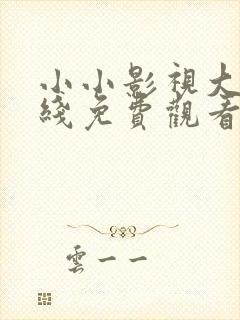 小小影視大
綫免費觀看
雲一一